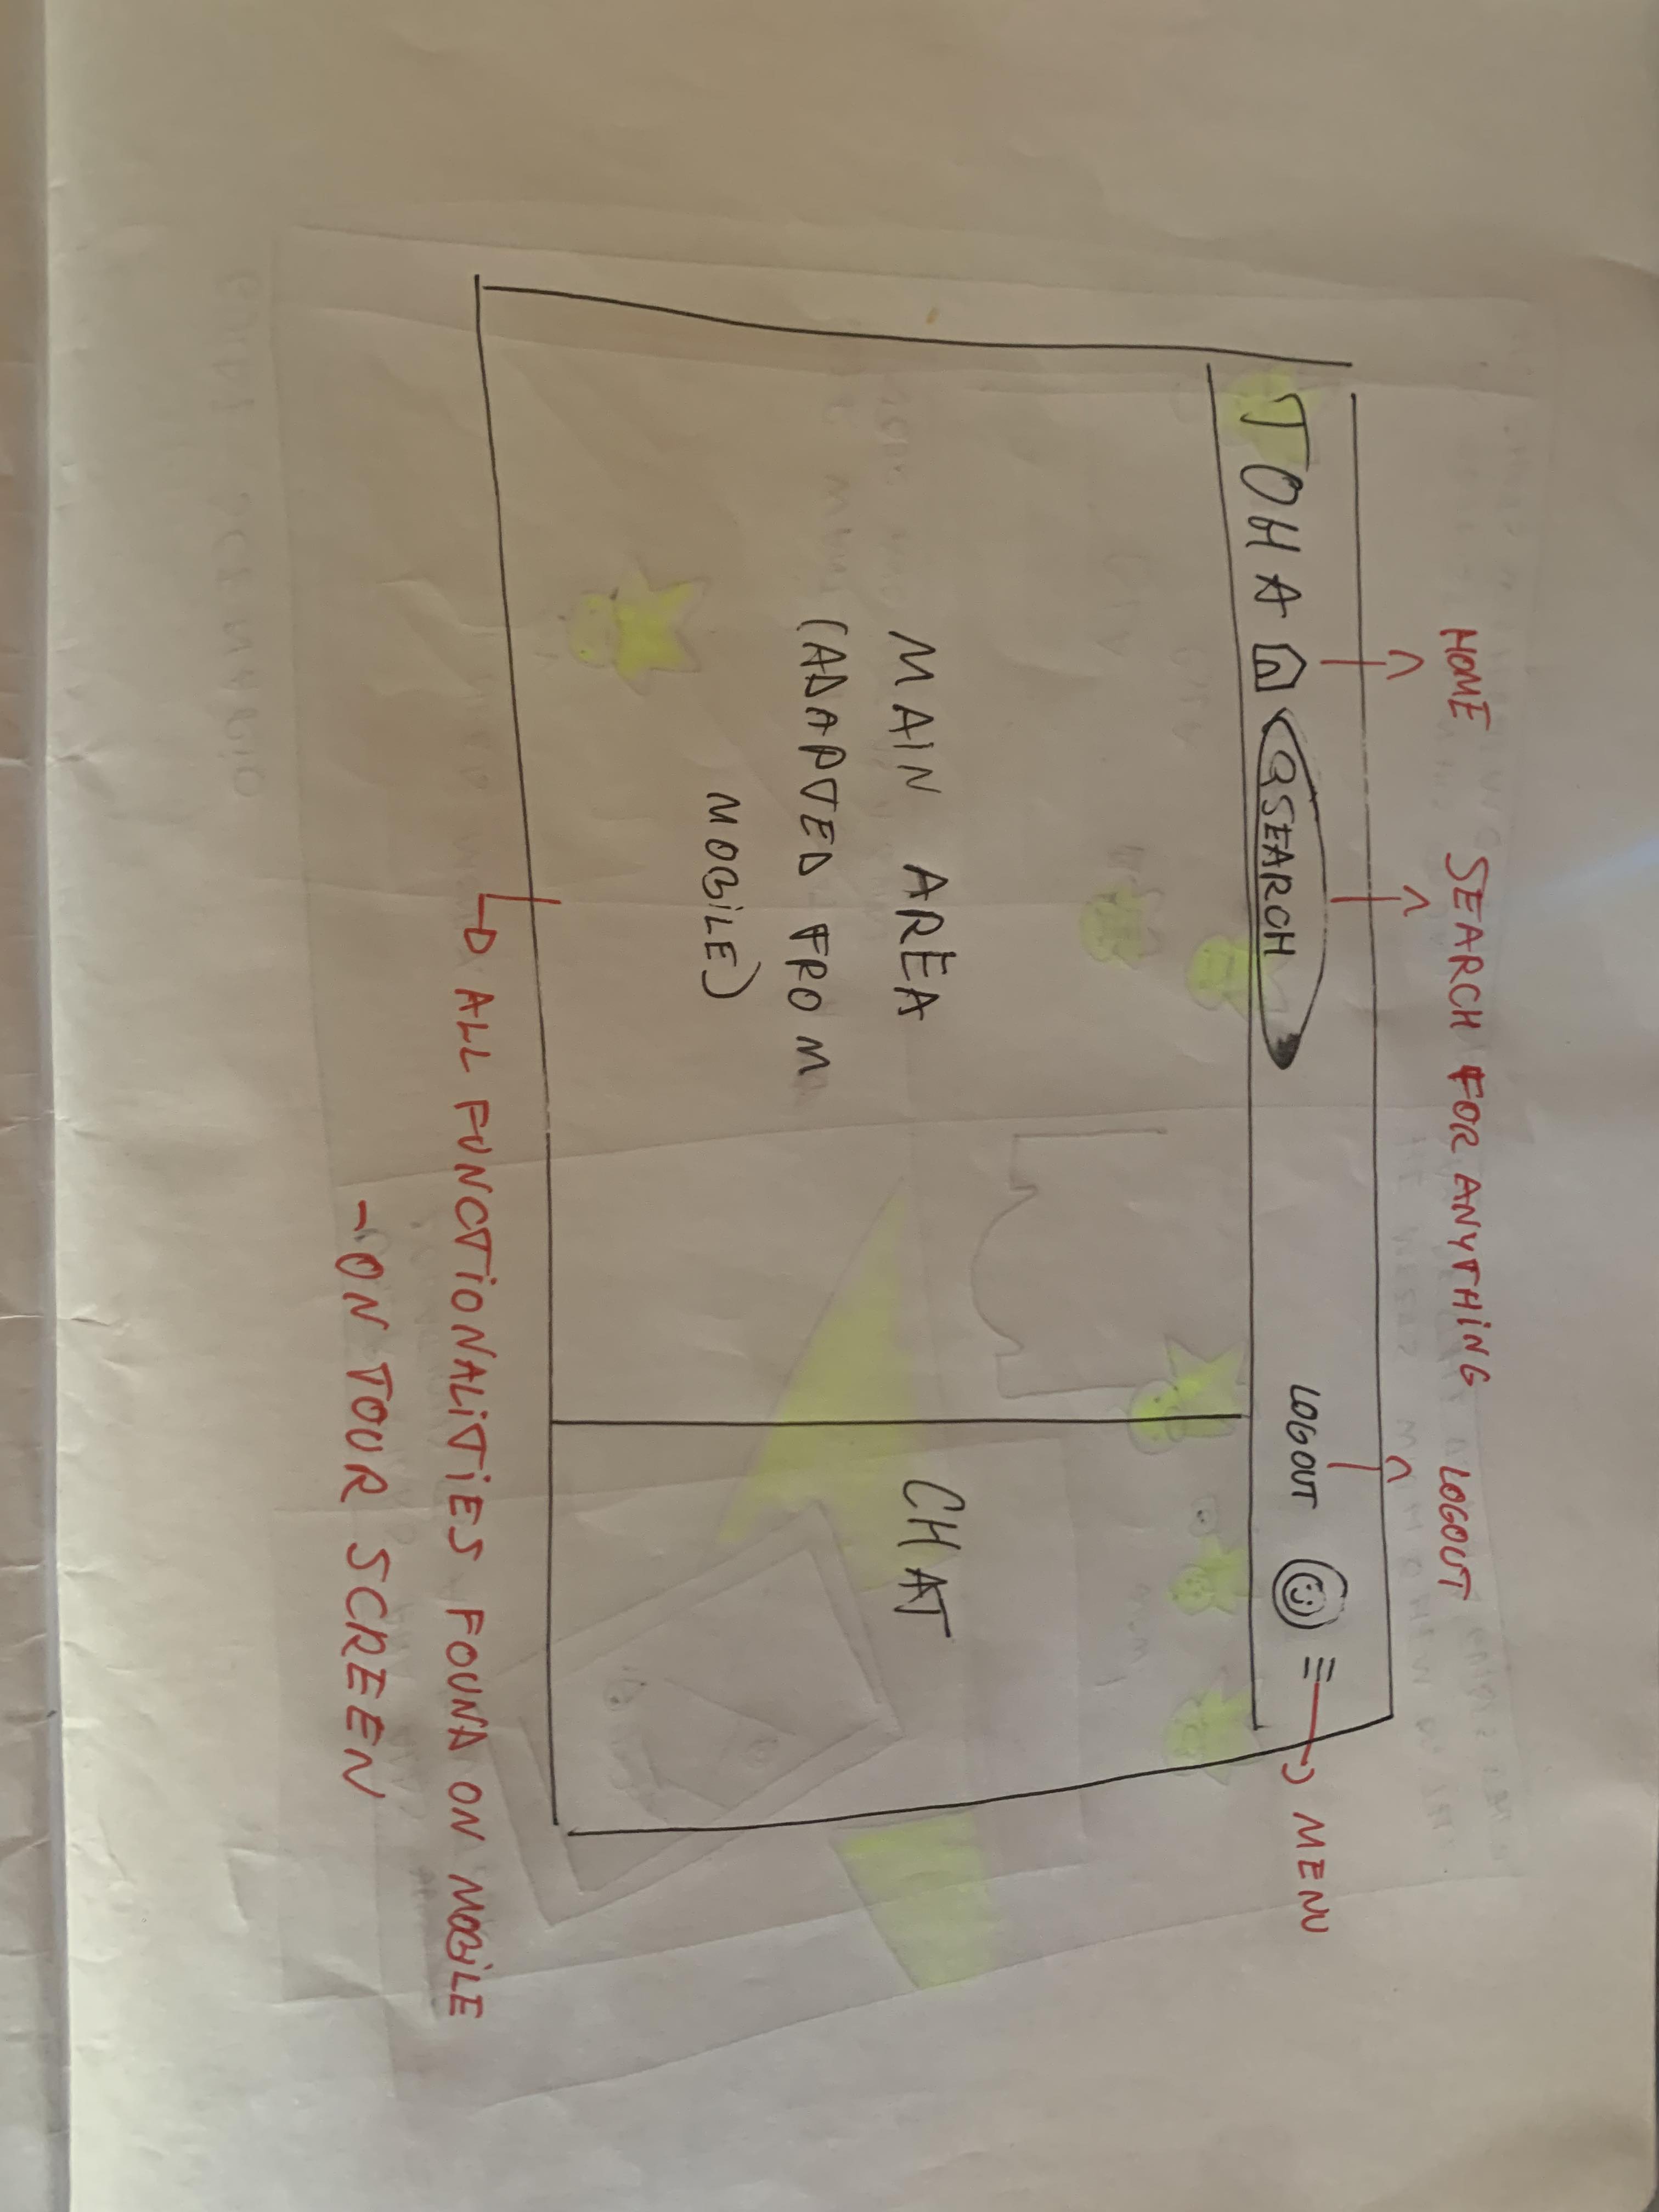 HOME SEARCH FOR ANYTHING LOGOUT
TOHA SEARCH LOGOUT MENU
MAIN AREA
(ADAPTED FROM
MOBILE)
CHAT
ALL FUNCTIONALITIES FOUND ON MOBILE
- ON TOUR SCREEN